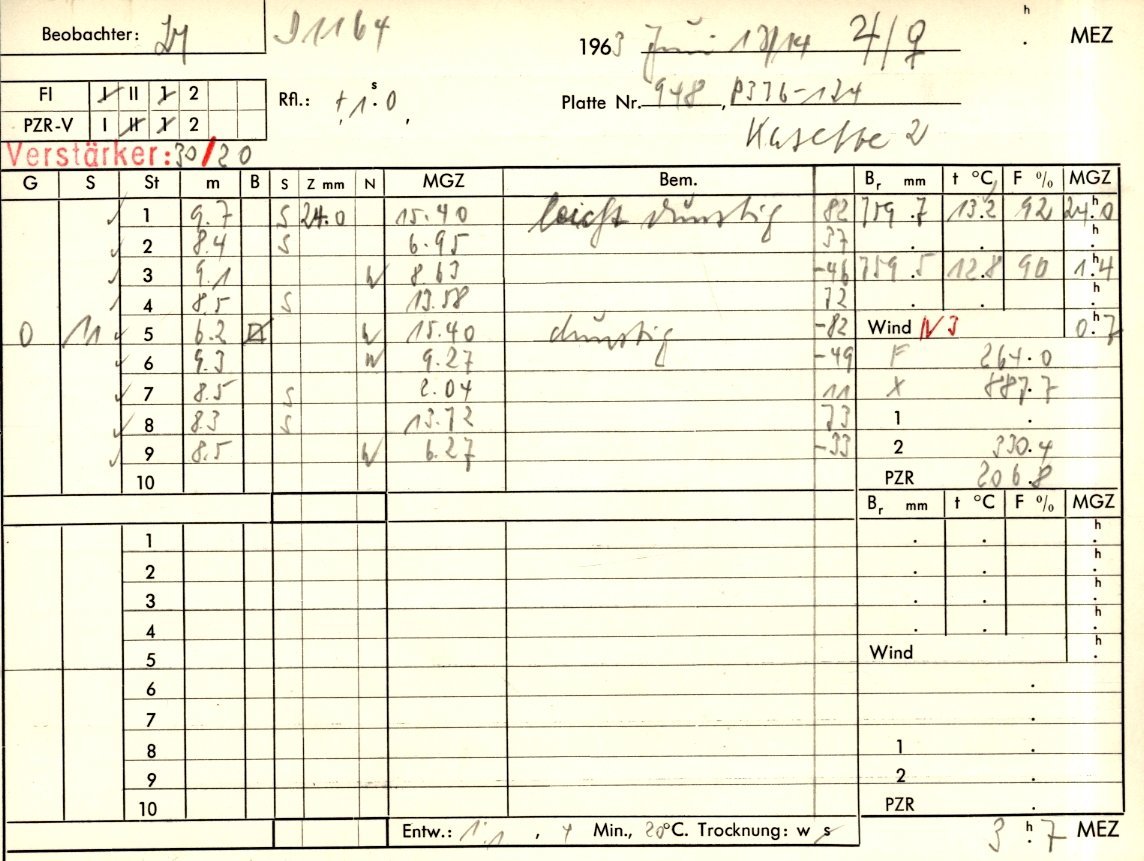 Beobachter:
D1164
1963 Juni 13/14
h . MEZ
FI I II 1 2
Rfl.: + 1 s. 0
PZR-V I II 1 2
Platte Nr. 948, P376-124
Kasette 2
Verstärker: 30/20
G S St m B S Z mm N MGZ Bem. Br mm t °C F % MGZ
1 9.7 S 24.0 15.40 leicht dunstig 82 759.7 13.2 92 24.h0
2 8.4 S 6.95 37 . . h.
3 9.1 W 8.63 -46 759.5 12.8 90 1.h4
4 8.5 S 13.58 72 . . h.
0 11 5 6.2 W 15.40 dunstig -82 Wind N 3 0.h7
6 9.3 W 9.27 -49 F 264.0
7 8.5 S 2.04 11 X 887.7
8 8.3 S 13.72 73 1 .
9 8.5 W 6.27 -33 2 330.4
10 PZR 206.8
Br mm t °C F % MGZ
1 . . h.
2 . . h.
3 . . h.
4 . . h.
5 Wind h.
6 .
7 .
8 1 .
9 2 .
10 PZR .
Entw.: 1:1, 4 Min., 20°C. Trocknung: w s
3 h. 7 MEZ